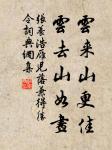 雲来山更佳
雲去山如畫
張養浩雁兒落兼得勝
令詞典網集